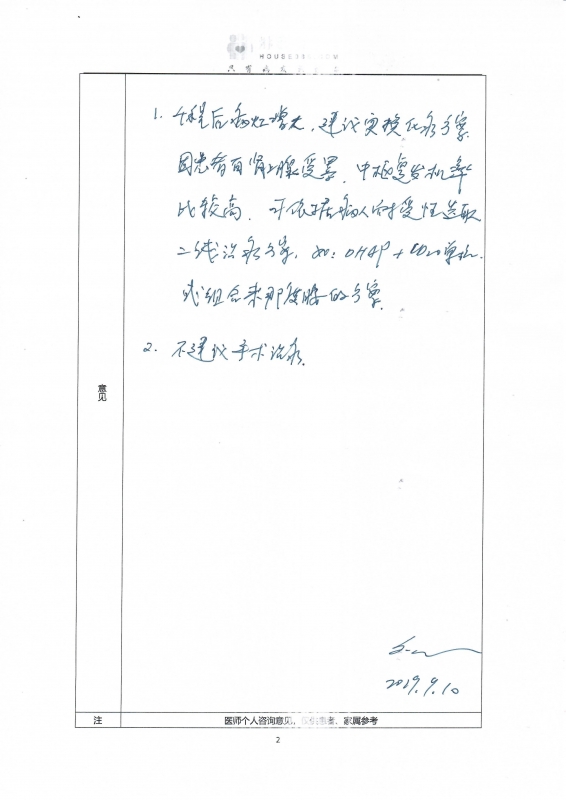 HOUSE
1. 4程后病灶增大，建议更换化疗方案.
因患者有肾上腺受累，中枢复发机率
比较高，可依据病人耐受性选取
二线治疗方案，如：DHAP + CD20单抗.
或组合来那度胺的方案.
2. 不建议手术治疗.
意见
2019.9.10
注
医师个人咨询意见，仅供患者、家属参考
2